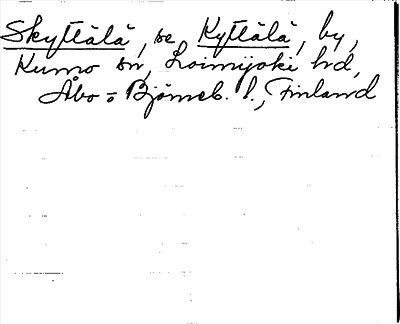 Skyttälä, se Kyttälä, by,
Kumo sn, Loimijoki hd,
Åbo o Björneb. l., Finland